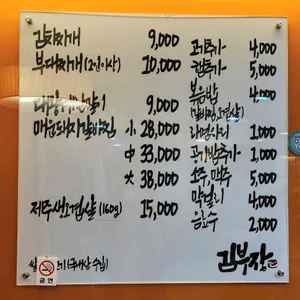 김치찌개 9,000
부대찌개 (2인이상) 10,000
9,000
매운돼지갈비찜 小 28,000
中 33,000
大 38,000
제주생오겹살 (160g) 15,000
고기추가 4,000
햄추가 5,000
볶음밥 4,000
라면사리 1,000
공기밥추가 1,000
소주, 맥주 5,000
막걸리 4,000
음료수 2,000
김부장
금연